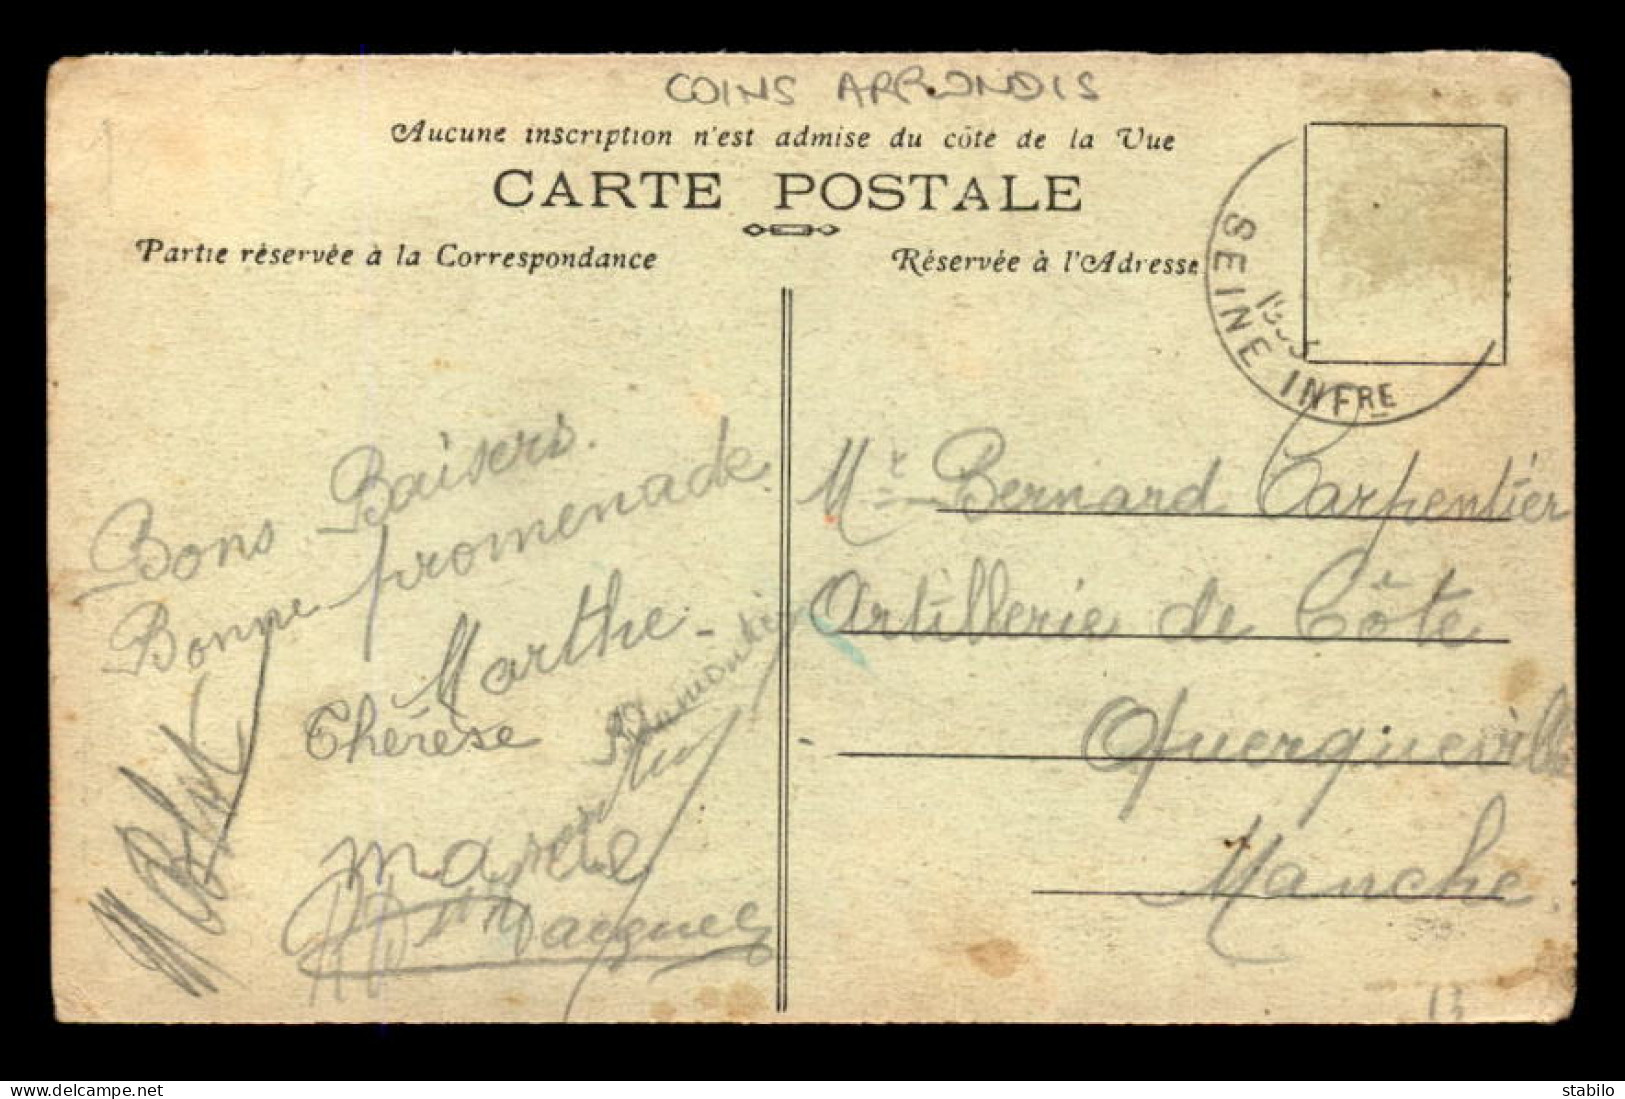 COINS ARRONDIS
Aucune inscription n'est admise du côté de la Vue
CARTE POSTALE
Partie réservée à la Correspondance
Réservée à l'Adresse
SEINE INFRE
Bons Baisers.
Bonne promenade
Marthe
Thérèse
Marcelle
Mr Bernard Carpentier
Artillerie de Côte
Querqueville
Manche.
13
www.delcampe.net
stabilo